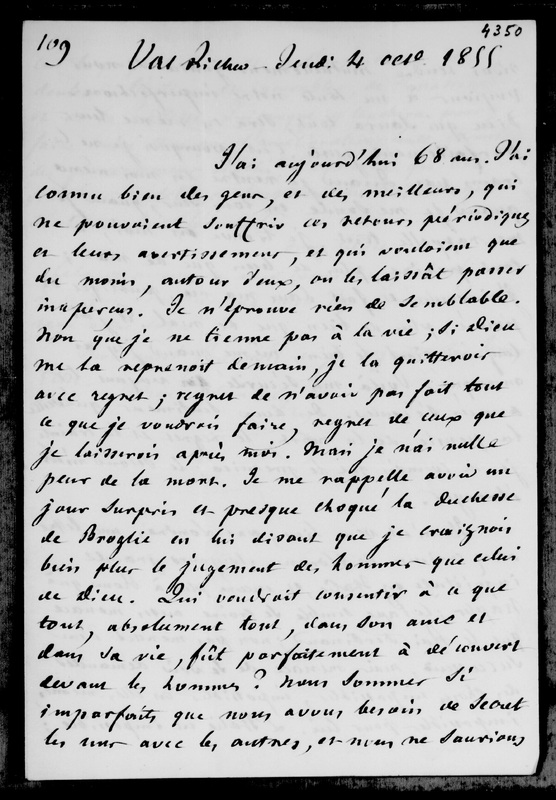 4350
109
Val Richer - Jeudi 4 octo 1855
J'ai aujourd'hui 68 ans. J'ai
connu bien des gens, et des meilleurs, qui
ne pouvoient souffrir ces retours périodiques
et leurs avertissemens, et qui vouloient que
du moins, autour d'eux, on les laissât passer
inaperçus. Je n'éprouve rien de semblable.
Non que je ne tienne pas à la vie ; si Dieu
me la reprenoit demain, je la quitterois
avec regret ; regret de n'avoir pas fait tout
ce que je voudrois faire, regret de ceux que
je laisserois après moi. Mais je n'ai nulle
peur de la mort. Je me rappelle avoir un
jour surpris et presque choqué la duchesse
de Broglie en lui disant que je craignois
bien plus le jugement des hommes que celui
de Dieu. Qui voudroit consentir à ce que
tout, absolument tout, dans son ame et
dans sa vie, fût parfaitement à découvert
devant les hommes ? Nous sommes si
imparfaits que nous avons besoin de secret
les uns avec les autres, et nous ne saurions